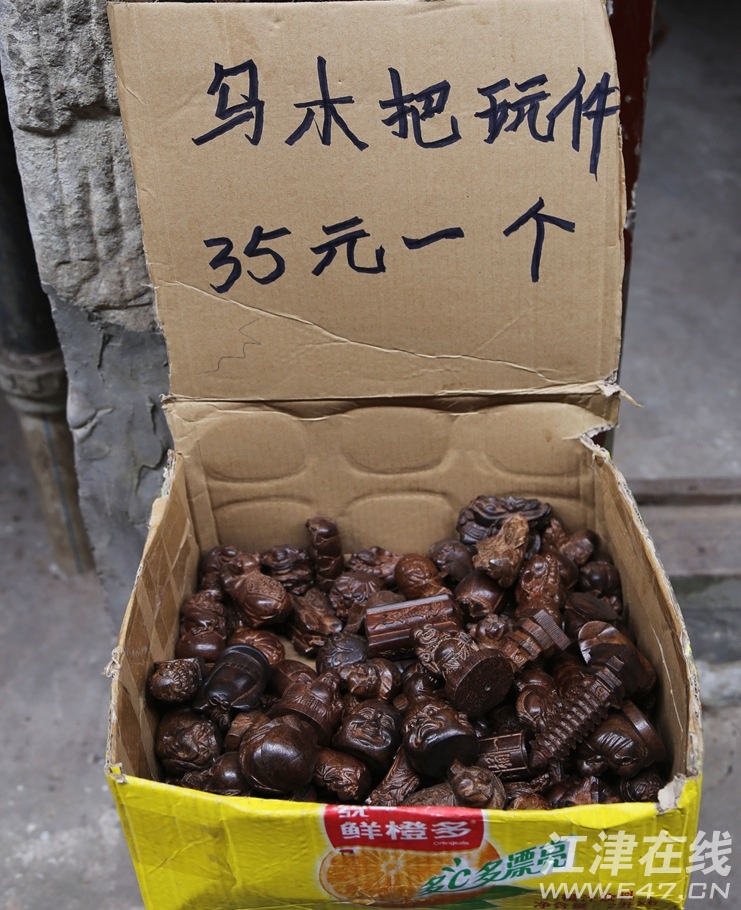 乌木把玩件
35元一个
统一
鲜橙多
多C多漂亮
江津在线
WWW.E47.CN